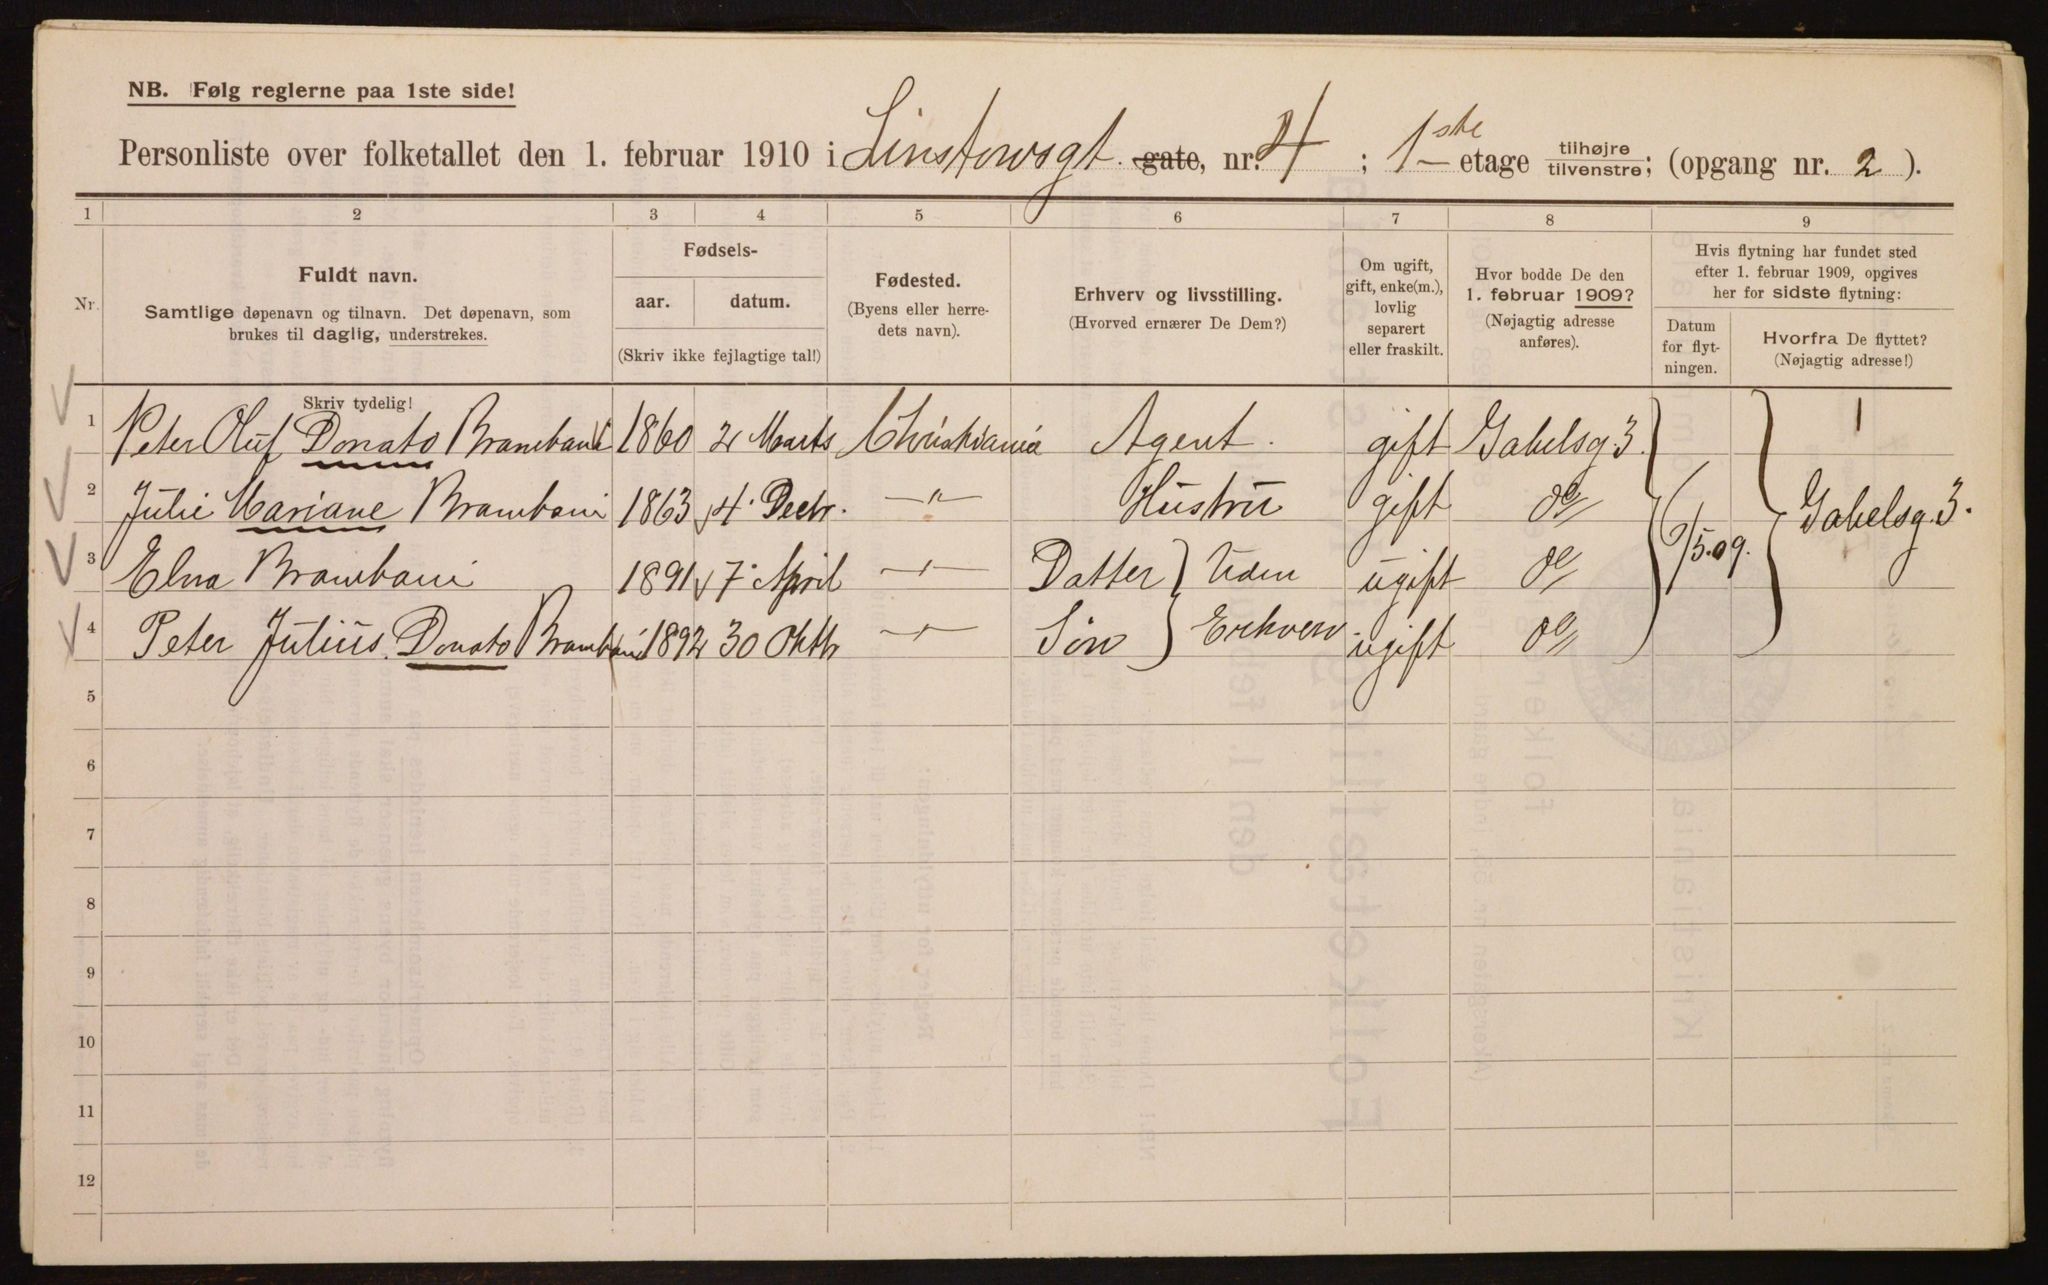 NB. Følg reglerne paa 1ste side!
Personliste over folketallet den 1. februar 1910 i Linstowsgt. gate, nr. 4 ; 1ste etage tilhøjre tilvenstre; (opgang nr. 2 ).
1 2 3 4 5 6 7 8 9
Nr.
Fuldt navn.
Samtlige døpenavn og tilnavn. Det døpenavn, som
brukes til daglig, understrekes.
Skriv tydelig!
Fødsels-
aar. datum.
(Skriv ikke fejlagtige tal!)
Fødested.
(Byens eller herre-
dets navn).
Erhverv og livsstilling.
(Hvorved ernærer De Dem?)
Om ugift,
gift, enke(m.),
lovlig
separert
eller fraskilt.
Hvor bodde De den
1. februar 1909?
(Nøjagtig adresse
anføres).
Hvis flytning har fundet sted
efter 1. februar 1909, opgives
her for sidste flytning:
Datum
for flyt-
ningen.
Hvorfra De flyttet?
(Nøjagtig adresse!)
1 Peter Oluf Donato Brambani 1860 2 Marts Christiania Agent. gift Gabelsg. 3.
2 Julie Mariane Brambani 1863 4. Decbr. —"— Hustru gift do
3 Elna Brambani 1891 7. April —"— Datter } Uden ugift do /5.09. Gabelsg. 3.
4 Peter Julius Donato Brambani 1892 30 Oktb —"— Søn } Erhverv ugift do
5
6
7
8
9
10
11
12